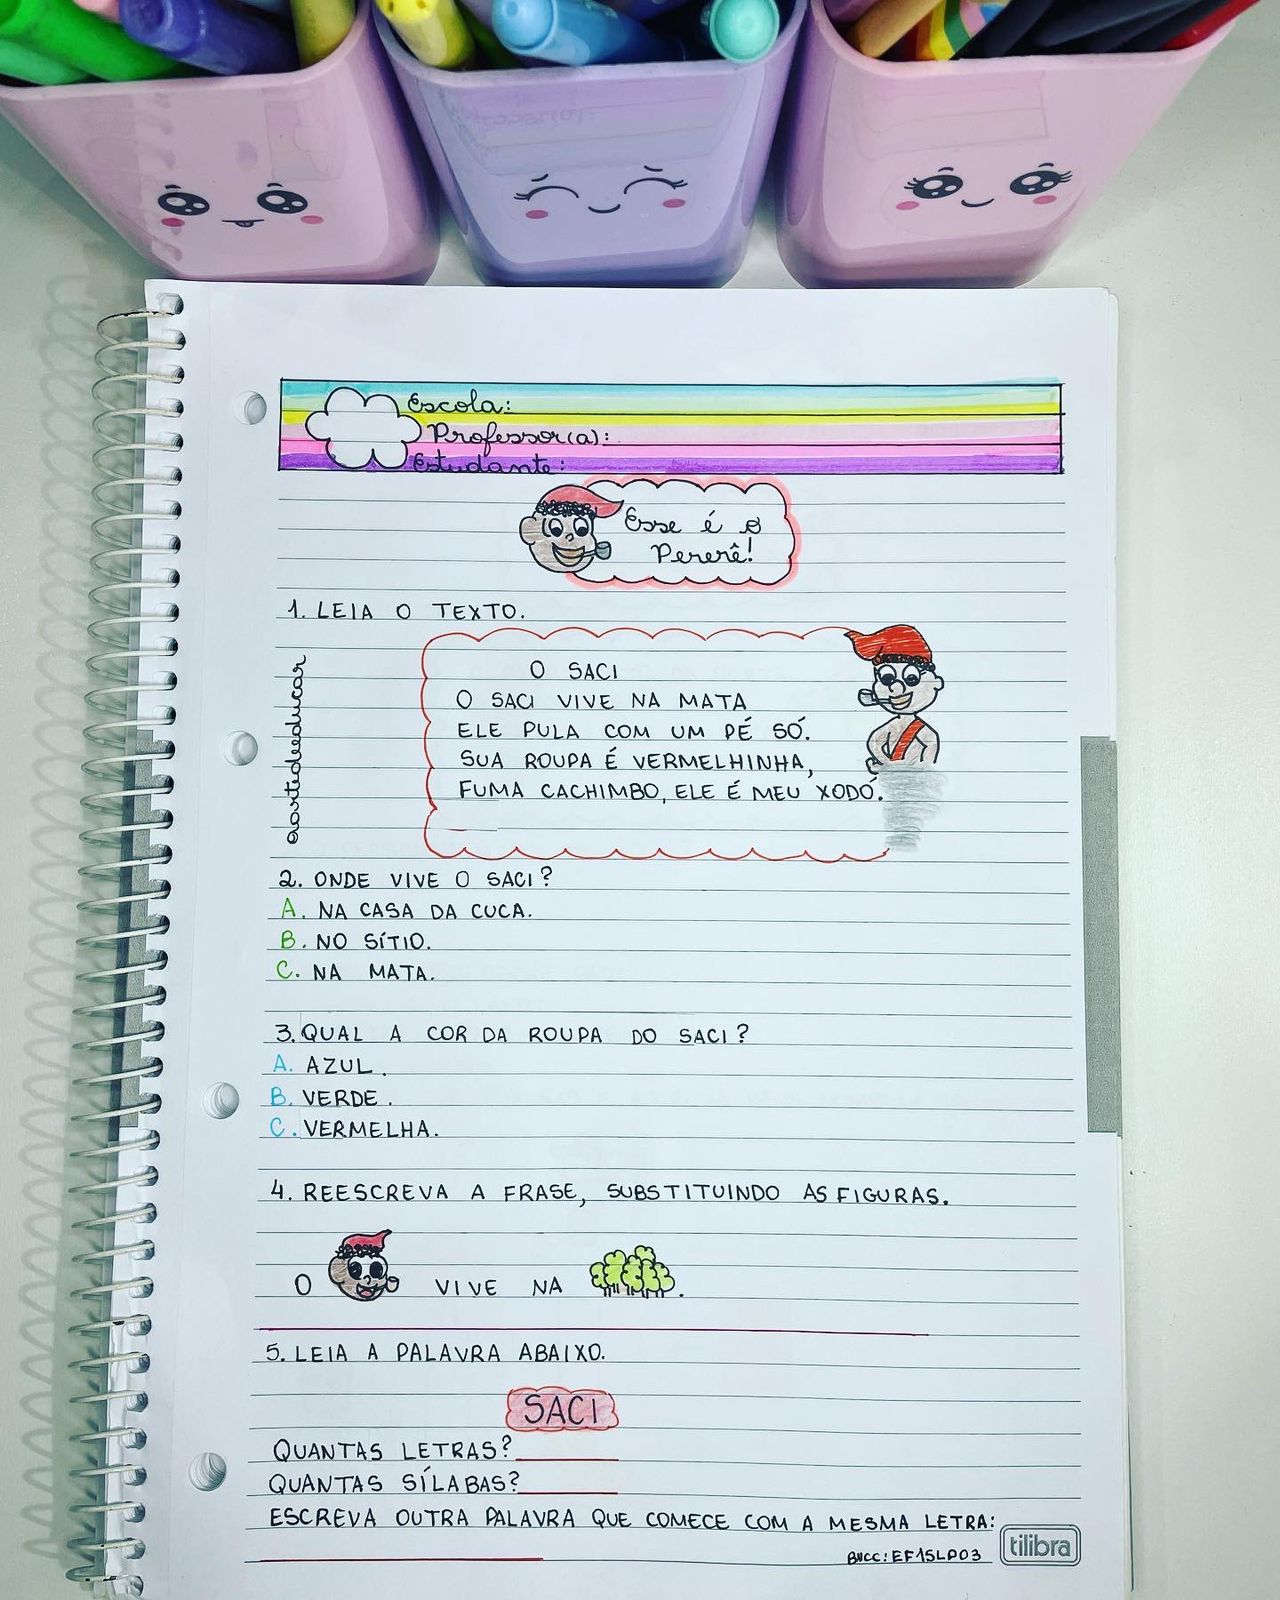 Escola:
Professor(a):
Estudante:
Esse é o
Pererê!
1. LEIA O TEXTO.
O SACI
O SACI VIVE NA MATA
ELE PULA COM UM PÉ SÓ.
SUA ROUPA É VERMELHINHA,
FUMA CACHIMBO, ELE É MEU XODÓ.
2. ONDE VIVE O SACI?
A. NA CASA DA CUCA.
B. NO SÍTIO.
C. NA MATA.
3. QUAL A COR DA ROUPA DO SACI?
A. AZUL.
B. VERDE.
C. VERMELHA.
4. REESCREVA A FRASE, SUBSTITUINDO AS FIGURAS.
O VIVE NA .
5. LEIA A PALAVRA ABAIXO.
SACI
QUANTAS LETRAS?
QUANTAS SÍLABAS?
ESCREVA OUTRA PALAVRA QUE COMECE COM A MESMA LETRA:
tilibra